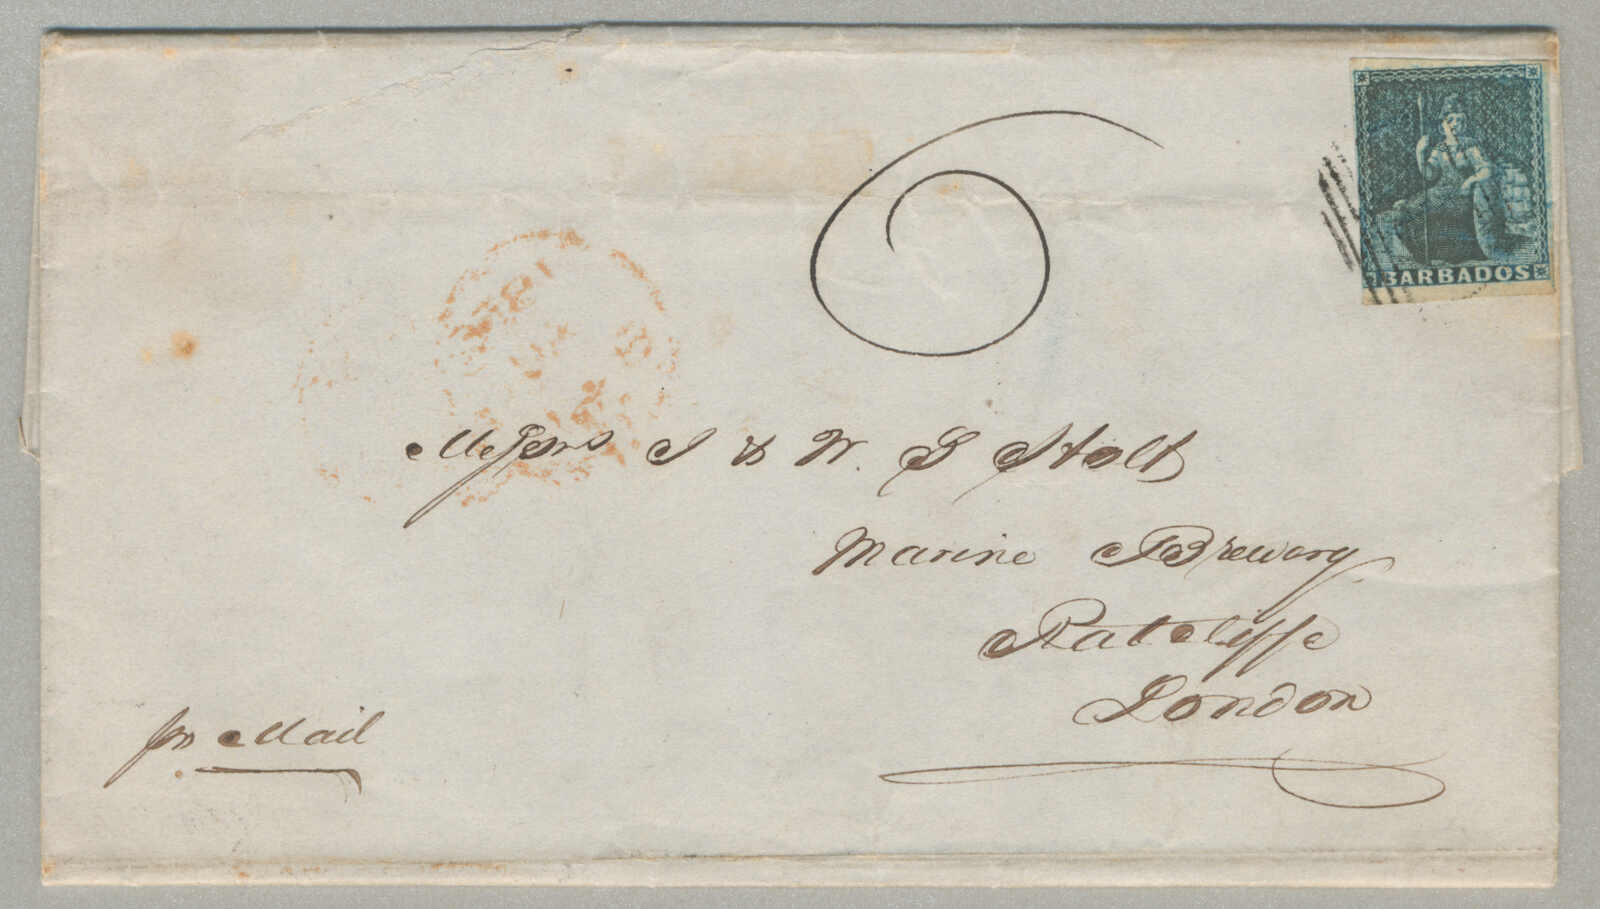 BARBADOS
6
Messrs J & W. S Stolt
Marine Brewery
Ratcliffe
London
pr Mail